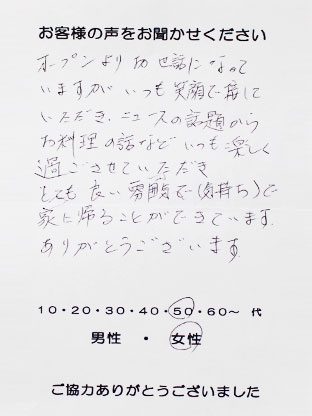 お客様の声をお聞かせください
オープンより お世話になって
いますが いつも 笑顔で 接して
いただき、ニュースの話題から
お料理の話など いつも 楽しく
過ごさせていただき
とても 良い 雰囲気で(気持ち)で
家に帰ることができています
ありがとうございます
10・20・30・40・50・60～ 代
男性 ・ 女性
ご協力ありがとうございました